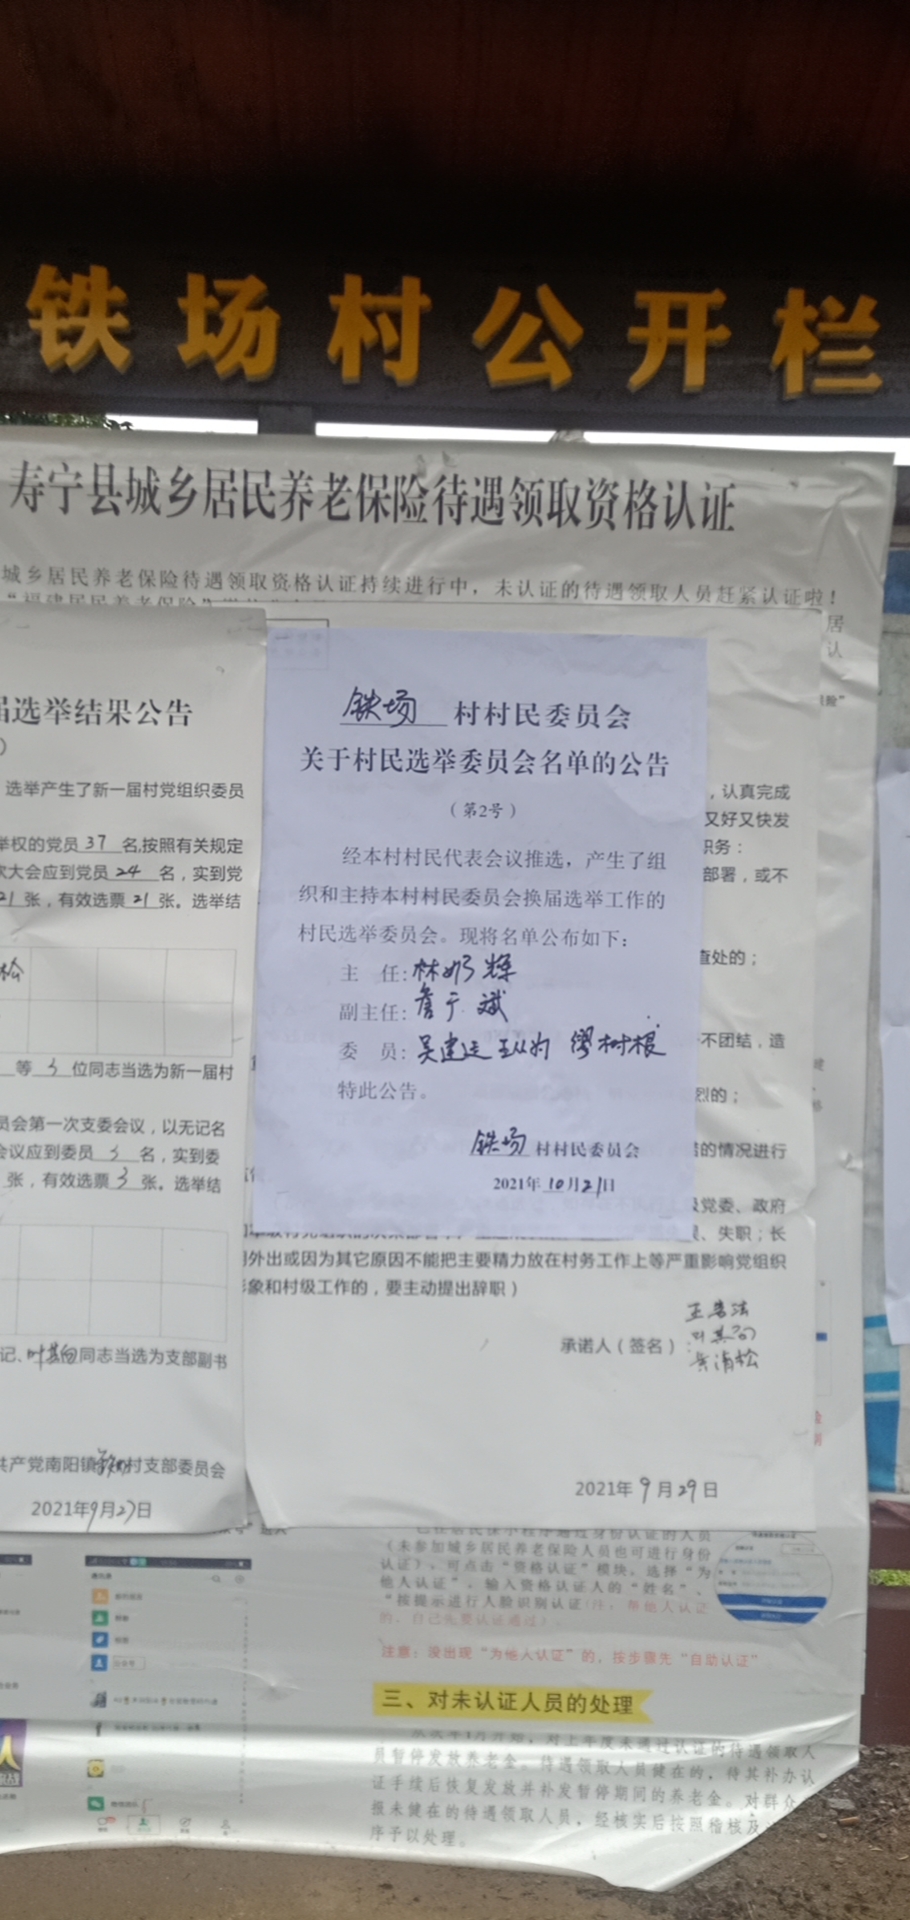 铁场村公开栏
寿宁县城乡居民养老保险待遇领取资格认证
城乡居民养老保险待遇领取资格认证持续进行中，未认证的待遇领取人员赶紧认证啦！
届选举结果公告
选举产生了新一届村党组织委员
举权的党员37名,按照有关规定
次大会应到党员24名，实到党
21张，有效选票21张。选举结
等3位同志当选为新一届村
员会第一次支委会议，以无记名
会议应到委员3名，实到委
张，有效选票3张。选举结
记、叶其回同志当选为支部副书
共产党南阳镇铁场村支部委员会
2021年9月27日
铁场村村民委员会
关于村民选举委员会名单的公告
（第2号）
经本村村民代表会议推选，产生了组
织和主持本村村民委员会换届选举工作的
村民选举委员会。现将名单公布如下：
主 任:林奶辉
副主任:詹于斌
委 员:吴建运 缪树根
特此公告。
铁场村村民委员会
2021年10月21日
，认真完成
又好又快发
职务：
部署，或不
查处的；
不团结，造
烈的；
的情况进行
级党委、政府
、失职；长
外出或因为其它原因不能把主要精力放在村务工作上等严重影响党组织
象和村级工作的，要主动提出辞职）
承诺人（签名）:
2021年9月29日
（未参加城乡居民养老保险人员也可进行身份
认证），可点击“资格认证”模块。选择“为
他人认证”，输入资格认证人的“姓名”、
“按提示进行人脸识别认证(注：帮他人认证
的，自己先要认证通过)
注意：没出现“为他人认证”的，按步骤先“自助认证”
三、对未认证人员的处理
从次年1月开始，对上年度未通过认证的待遇领取人
员暂停发放养老金。待遇领取人员健在的，待其补办认
证手续后恢复发放并补发暂停期间的养老金。对群众
报未健在的待遇领取人员，经核实后按照稽核及
序予以处理。